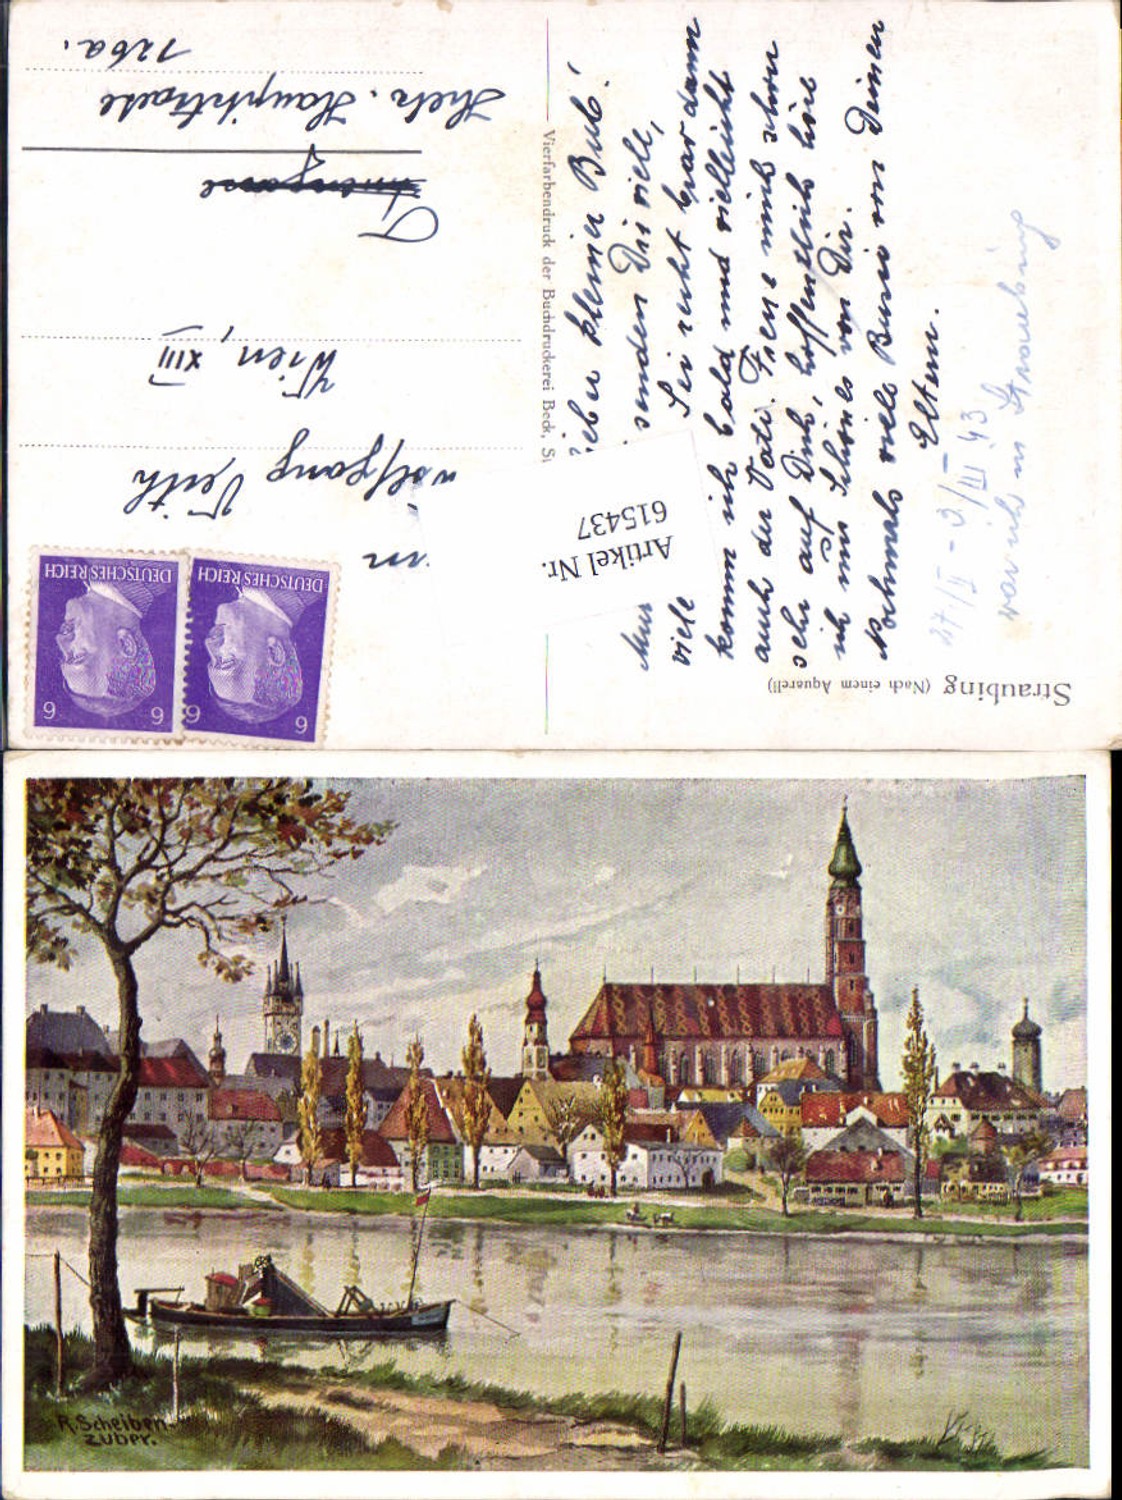 Straubing (Nach einem Aquarell)
Vierfarbendruck der Buchdruckerei Beck, St
DEUTSCHES REICH
6
6
DEUTSCHES REICH
6
6
Wolfgang Veith
Wien, XIII
Hietz. Hauptstrasse
126a.
Lieber kleiner Bub!
senden Dir viele,
viele
Sei recht brav dann
komm ich bald und vielleicht
auch der Vati. Freue mich schon
sehr auf Dich, hoffentlich höre
ich nur Schönes von Dir.
Nochmals viele Bussi von Deinen
Eltern.
27/II - 3/III 43
war ich in Straubing
Artikel Nr.
615437
R. Scheiben-
zuber.